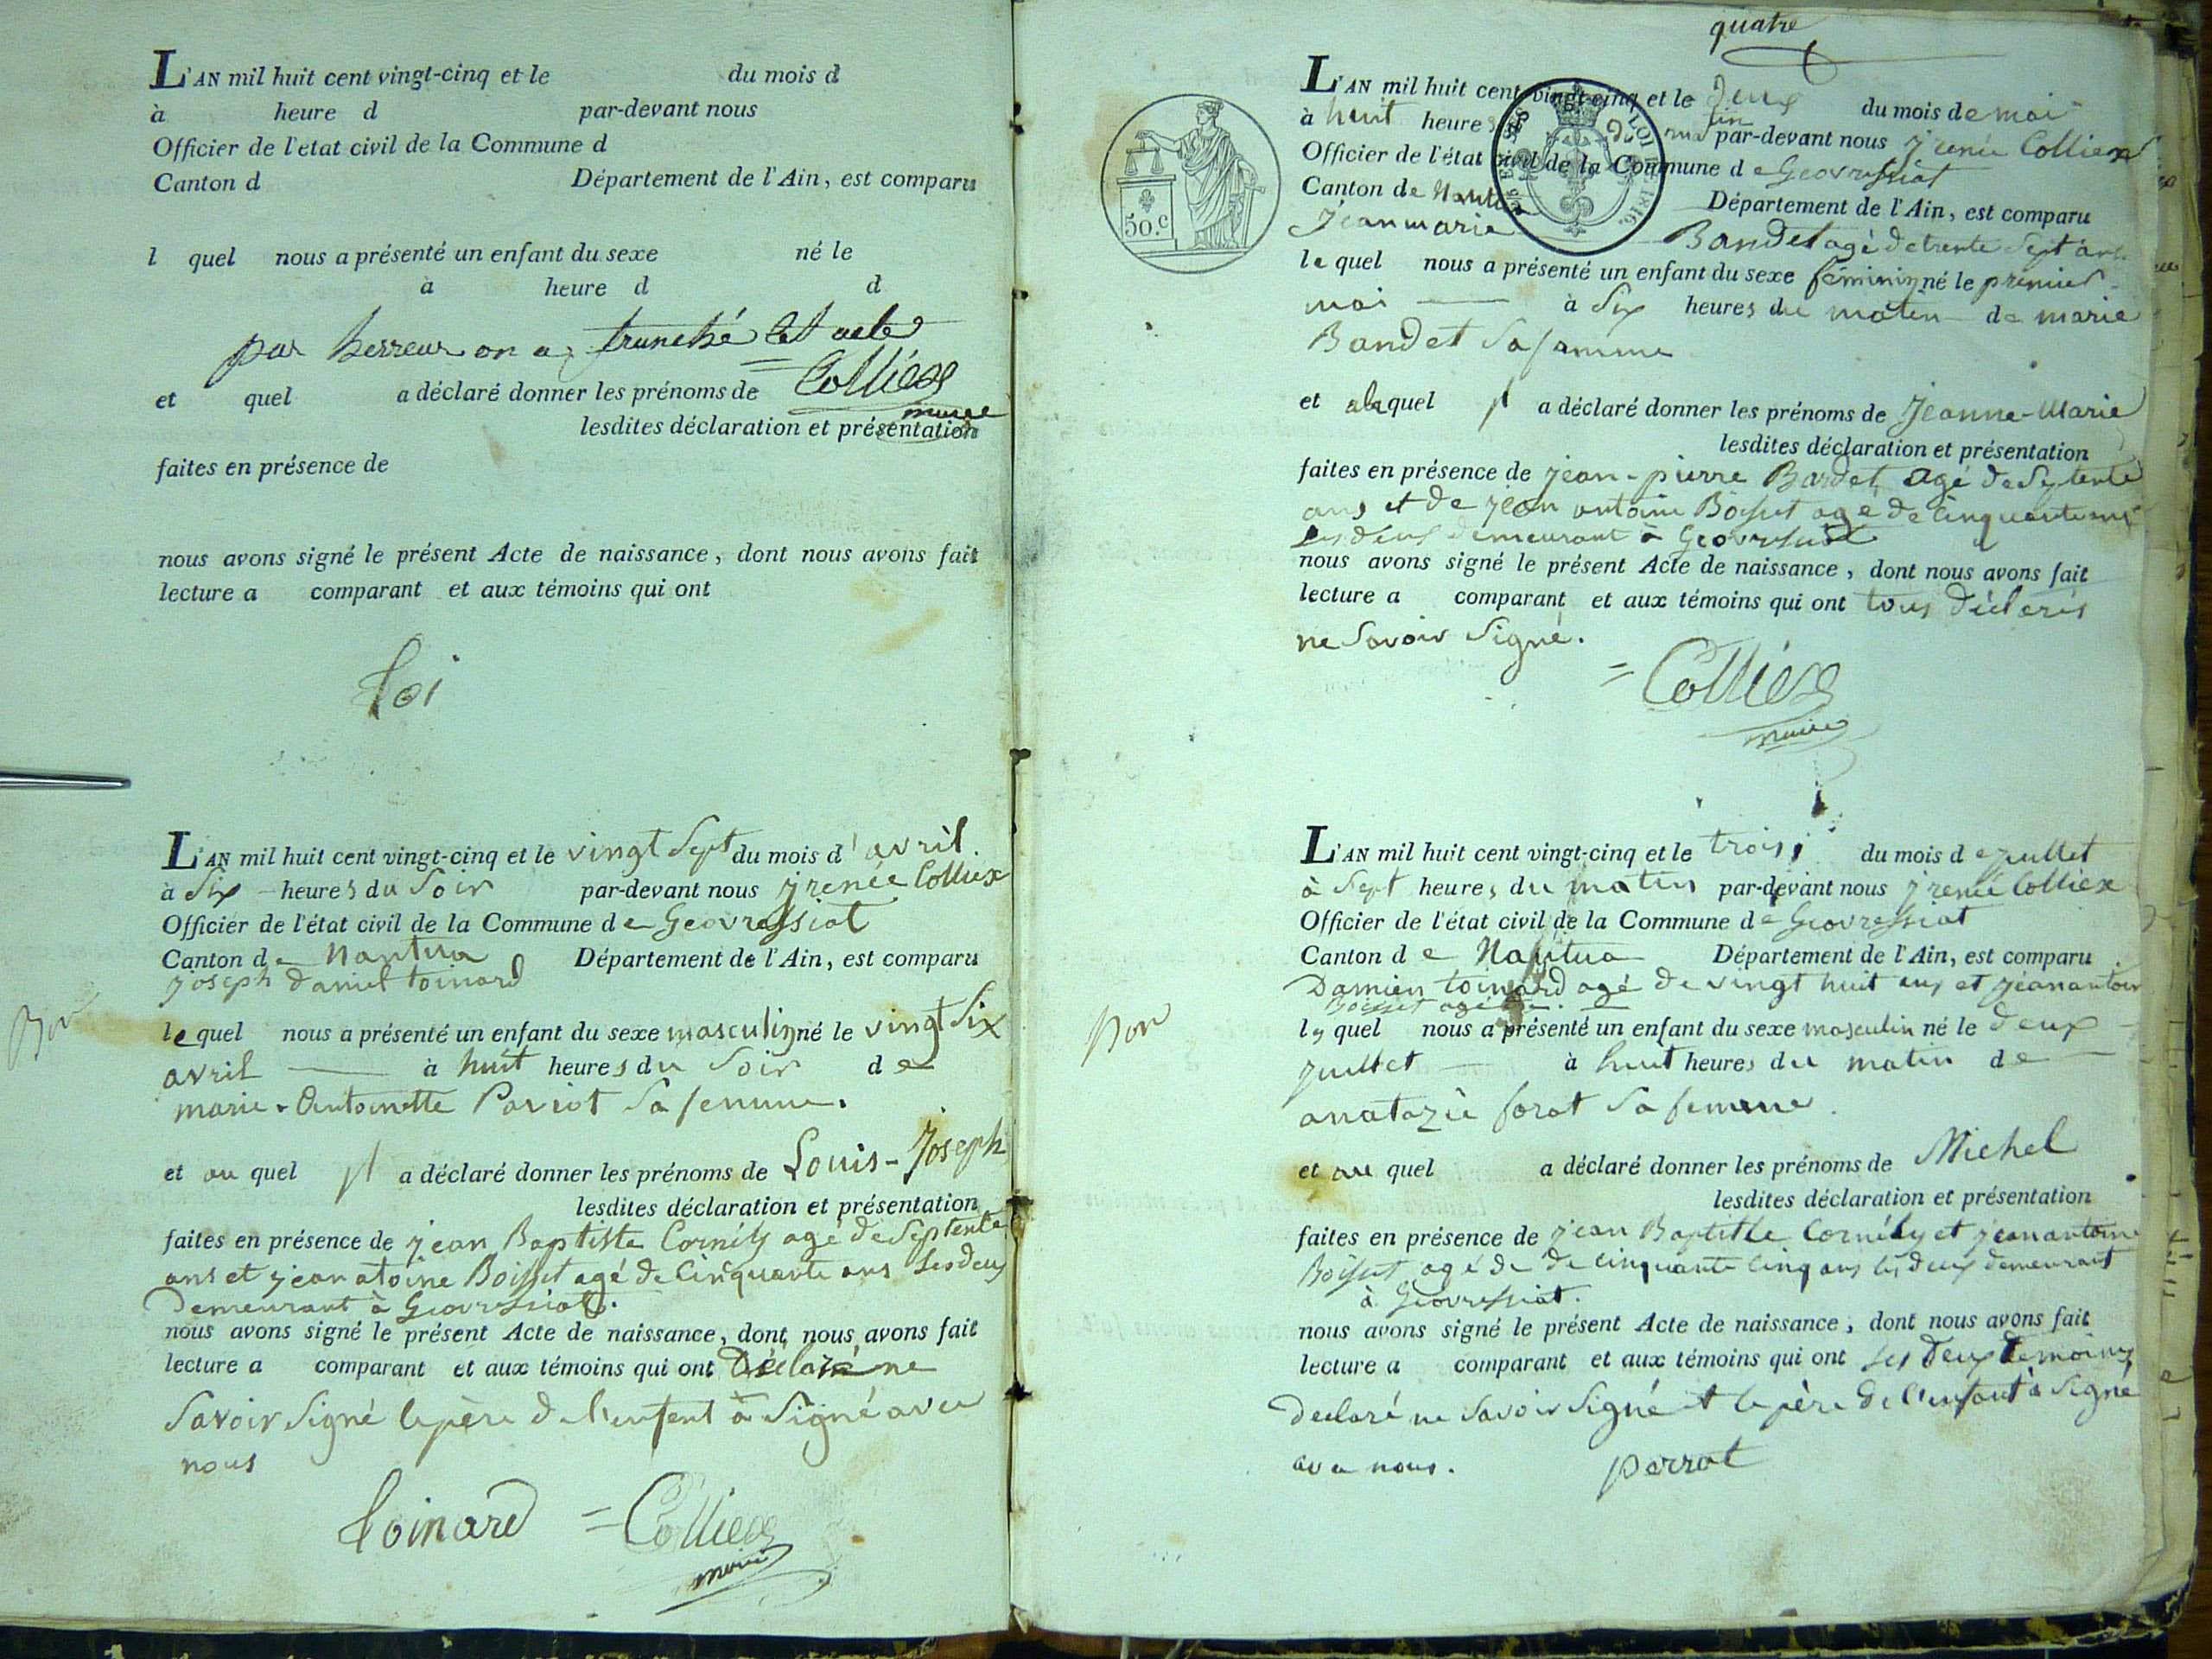 L'AN mil huit cent vingt-cinq et le du mois d
à heure d par-devant nous
Officier de l'etat civil de la Commune d
Canton d Département de l'Ain, est comparu
l quel nous a présenté un enfant du sexe né le
à heure d d
par herreur on a trunché cet acte
et quel a déclaré donner les prénoms de Colliex
maire
lesdites déclaration et présentation
faites en présence de
nous avons signé le présent Acte de naissance, dont nous avons fait
lecture a comparant et aux témoins qui ont
toi
L'AN mil huit cent vingt-cinq et le vingt Sept du mois d'avril.
à Six heures du Soir par-devant nous jrenée Colliex
Officier de l'état civil de la Commune de Geovressiat
Canton de Nantua Département de l'Ain, est comparu
joseph daniel toinard
Bon
lequel nous a présenté un enfant du sexe masculin né le vingt Six
avril à huit heures du Soir de
marie-Antoinette Paviot Sa femme.
et au quel jl a déclaré donner les prénoms de Louis-Joseph
lesdites déclaration et présentation
faites en présence de jean Baptiste Cornély agé de Septente
ans et jean atoine Boisset agé de Cinquante ans Les deux
Demeurant à Geovressiat.
nous avons signé le présent Acte de naissance, dont nous avons fait
lecture a comparant et aux témoins qui ont Déclaré ne
Savoir Signé le père de l'enfent à Signé avec
nous
toinard = Colliex
maire
quatre
L'AN mil huit cent vingt-cinq et le Deux du mois de mai
à huit heures du matin par-devant nous jrenée Colliex
Officier de l'état civil de la Commune de Geovressiat
Canton de Nantua Département de l'Ain, est comparu
50.c
LOI DE 1816.
Jean marie Bandet agé de trente Sept ans
lequel nous a présenté un enfant du sexe féminin né le premier
mai à Six heures du matin de marie
Bandet Sa famme
et alaquel jl a déclaré donner les prénoms de Jeanne-Marie
lesdites déclaration et présentation
faites en présence de jean-pierre Bardet agé de Septente
ans et de jean antoine Boisset agé de Cinquante ans
Les deux demeurant à Geovressiat
nous avons signé le présent Acte de naissance, dont nous avons fait
lecture a comparant et aux témoins qui ont tous déclerés
ne Savoir Signé.
= Colliex
maire
L'AN mil huit cent vingt-cinq et le trois du mois de juillet
à Sept heures du matin par-devant nous jrenée Colliex
Officier de l'état civil de la Commune de Geovressiat
Canton de Nantua Département de l'Ain, est comparu
Damien toinard agé de vingt huit ans et jean antoin
Boisset agé de
Bon
ls quel nous a présenté un enfant du sexe masculin né le deux
juillet à huit heures du matin de
anatazie forat Sa femme.
et au quel a déclaré donner les prénoms de Michel
lesdites déclaration et présentation
faites en présence de jean Baptiste Cornély et jean antoine
Boisset agé de de cinquante cinq ans les deux demeurant
à Geovressiat.
nous avons signé le présent Acte de naissance, dont nous avons fait
lecture a comparant et aux témoins qui ont les deux témoins
declaré ne Savoir Signé et le père de l'enfant à Signé
avec nous. perrat